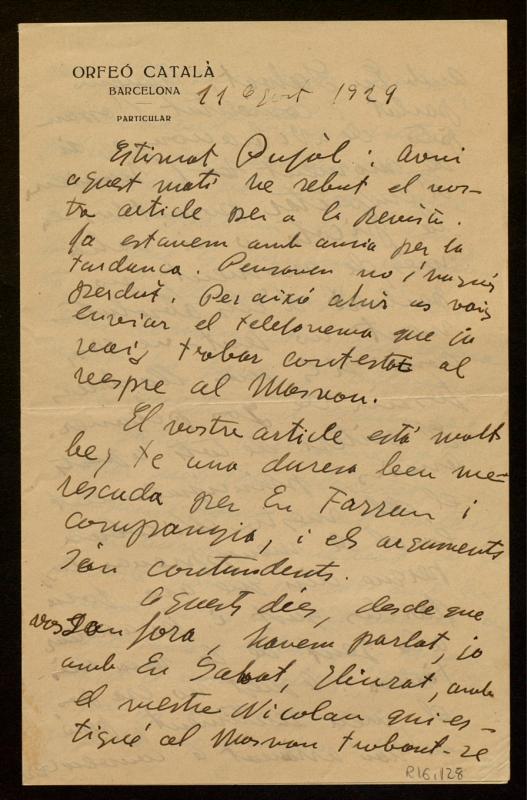 ORFEÓ CATALÀ
BARCELONA
PARTICULAR
11 Agost 1929
Estimat Pujol: Avui
aquest mati he rebut el vos-
tre article per a la Revista.
Ja estavem amb ansia per la
tardança. Pensavem no s'hagués
perdut. Per aixó ahir us vaig
enviar el telefonema que ja
vaig trobar contestat al
vespre al Masnou.
El vostre article está molt
be, te una duresa ben me-
rescuda per En Farran i
companyia, i els arguments
són contundents.
Aquests dies, desde que
vos sou fora, havem parlat, jo
amb En Sabat, Eliurat, amb
el mestre Nicolau qui es-
tigué al Masnou trobant-se
R16,128